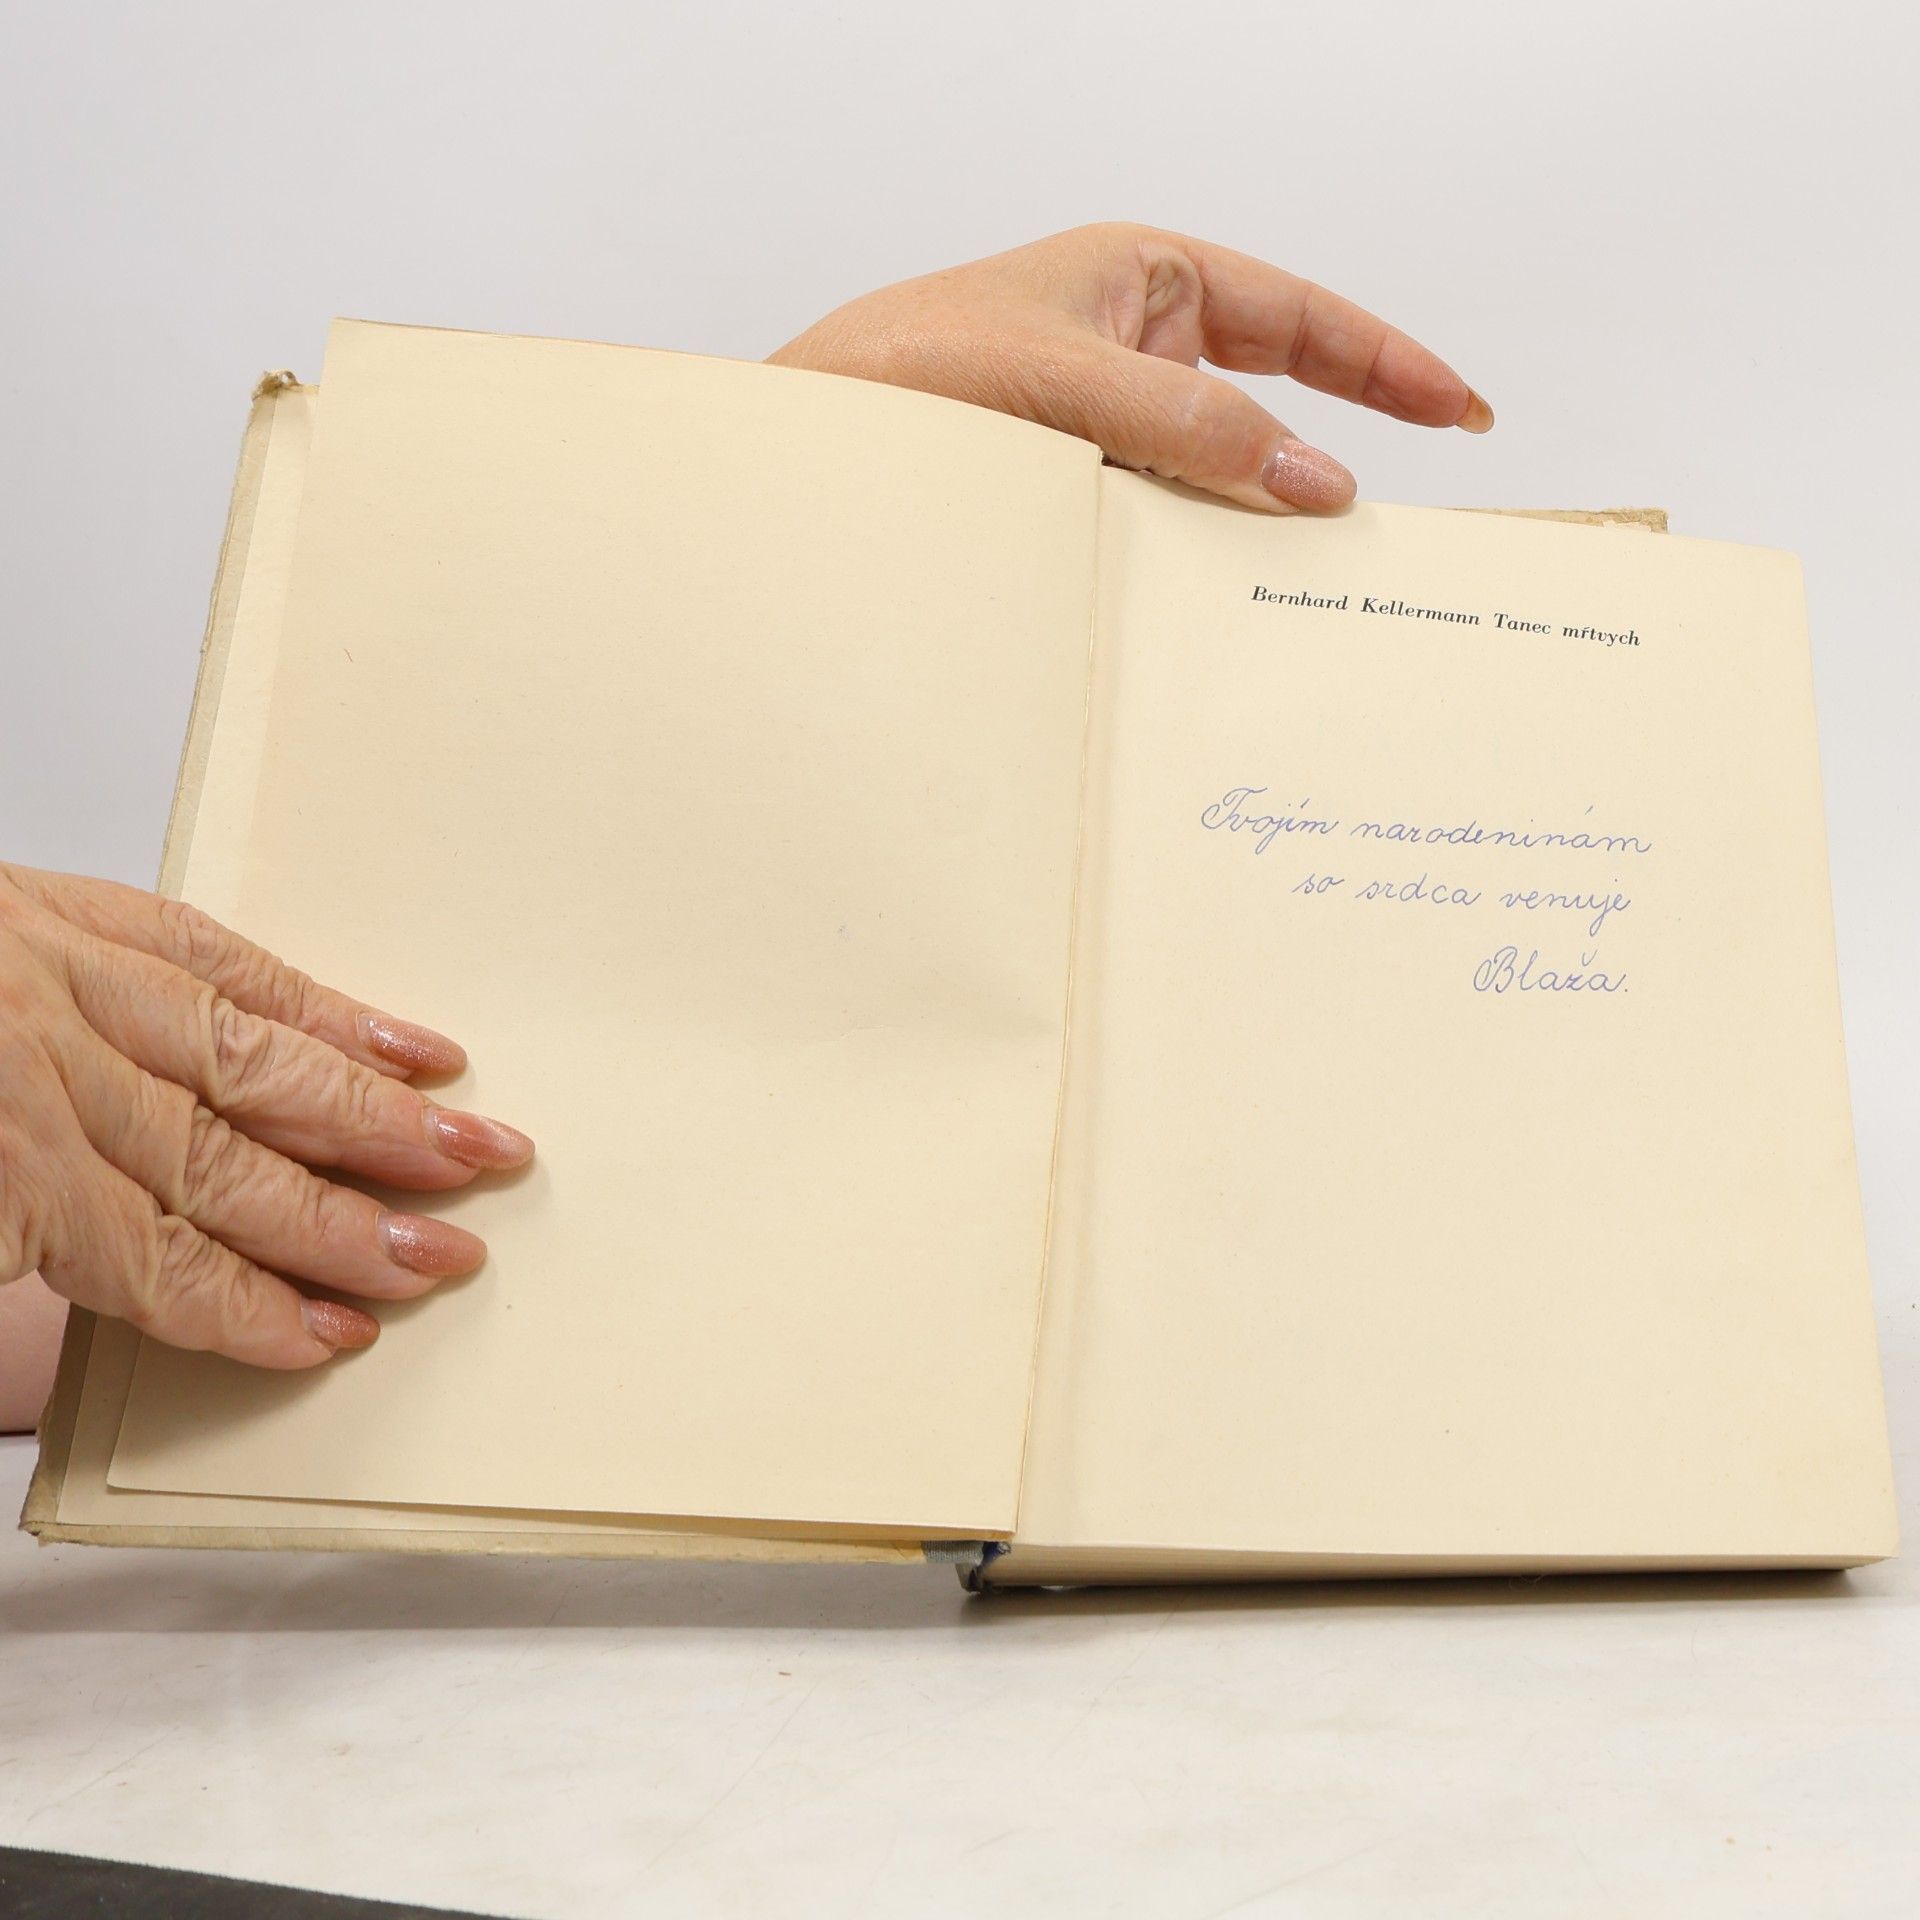 Bernhard Kellermann Tanec mŕtvych
Tvojím narodeninám
so srdca venuje
Blaža.